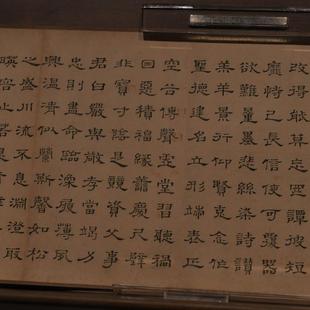 改得能莫忘罔談彼短
靡恃己長信使可覆器
欲難量墨悲絲染詩讚
羔羊景行維賢克念作
聖德建名立形端表正
空谷傳聲虛堂習聽禍
因惡積福緣善慶尺璧
非寶寸陰是競資父事
君曰嚴與敬孝當竭力
忠則盡命臨深履薄夙
興溫凊似蘭斯馨如松
之盛川流不息淵澄取
暎容止若